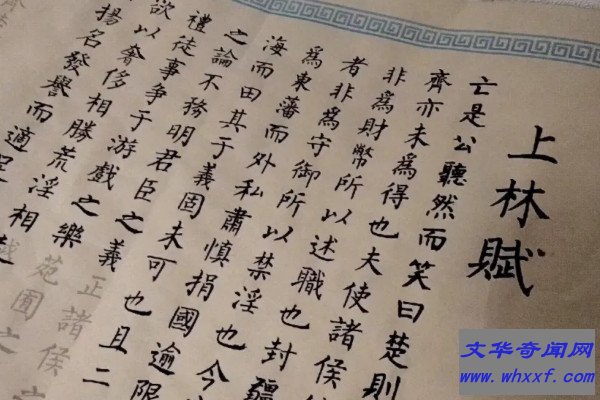 上林賦
亡是公聽然而笑曰楚則
齊亦未為得也夫使諸侯
非為財幣所以述職也封疆
者非為守御所以禁淫也今
為東藩而外私肅慎捐國逾限
海而田其于義固未可也且二
之論不務明君臣之義正諸侯
禮徒事爭于游戲之樂苑囿之
欲以奢侈相勝荒淫相越
揚名發譽而適足
文华奇闻网
www.whxxf.com